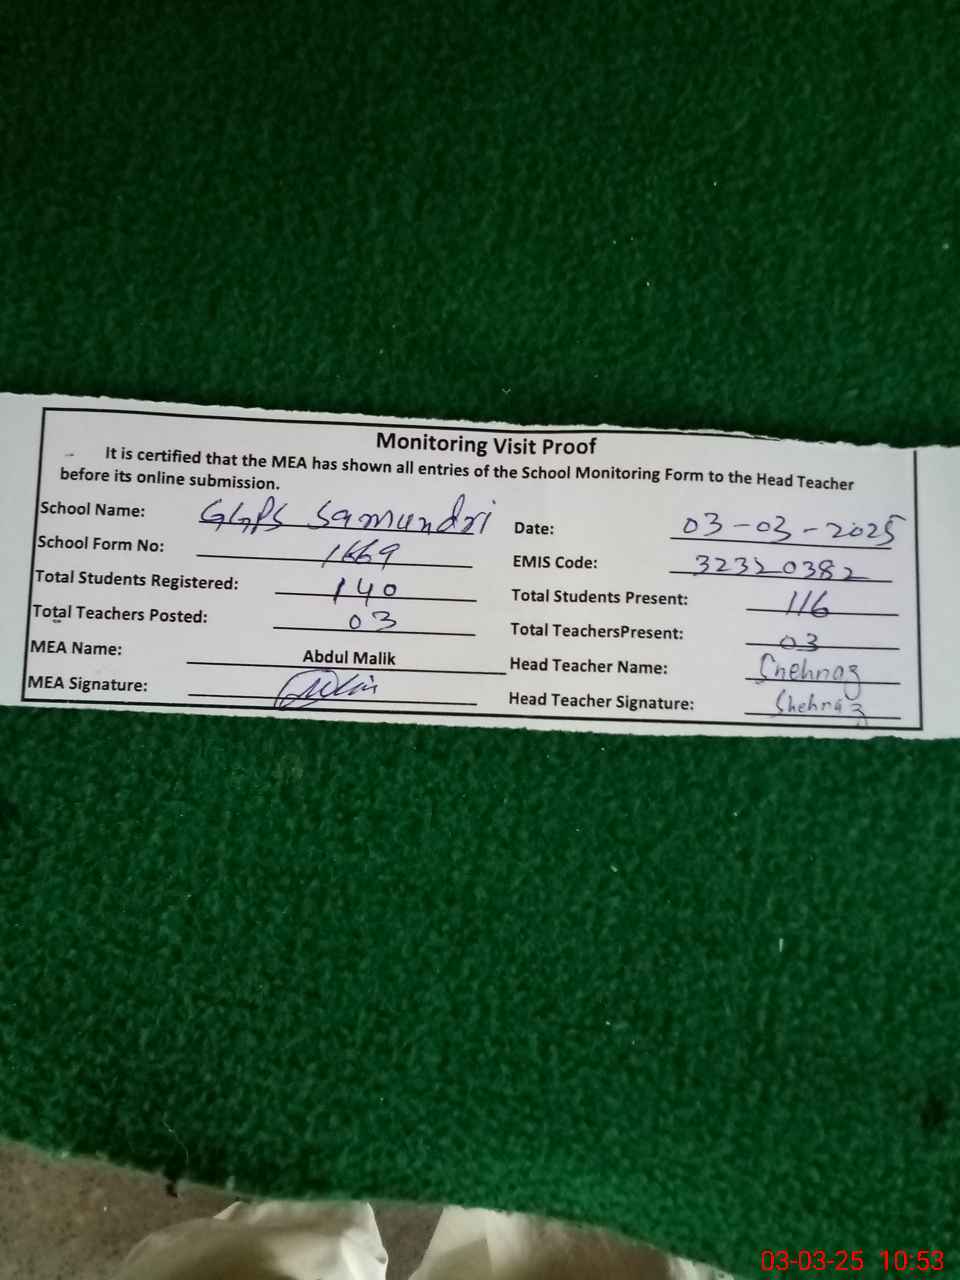 Monitoring Visit Proof
It is certified that the MEA has shown all entries of the School Monitoring Form to the Head Teacher
before its online submission.
School Name: GGPS Samundri
Date: 03-03-2025
School Form No: 1669
EMIS Code: 32320382
Total Students Registered: 140
Total Students Present: 116
Total Teachers Posted: 03
Total TeachersPresent: 03
MEA Name: Abdul Malik
Head Teacher Name: Shehnaz
MEA Signature:
Head Teacher Signature: Shehnaz
03-03-25 10:53